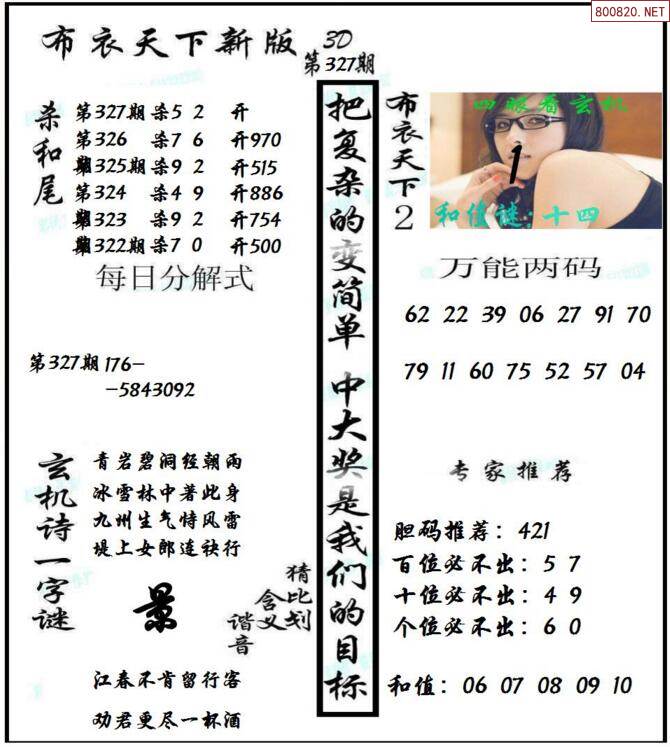 800820.NET
布衣天下新版 3D
第327期
杀和尾
第327期 杀5 2 开
第326 杀7 6 开970
第325期 杀9 2 开515
第324 杀4 9 开886
第323 杀9 2 开754
第322期 杀7 0 开500
每日分解式
第327期 176-
-5843092
玄机诗一字谜
青岩碧洞经朝雨
冰雪林中著此身
九州生气恃风雷
堤上女郎连袂行
景
猜比划
含义
谐音
江春不肯留行客
劝君更尽一杯酒
把复杂的变简单 中大奖是我们的目标
布衣天下2
四眼看玄机
1
和值谜:十四
万能两码
62 22 39 06 27 91 70
79 11 60 75 52 57 04
专家推荐
胆码推荐:421
百位必不出:5 7
十位必不出:4 9
个位必不出:6 0
和值:06 07 08 09 10